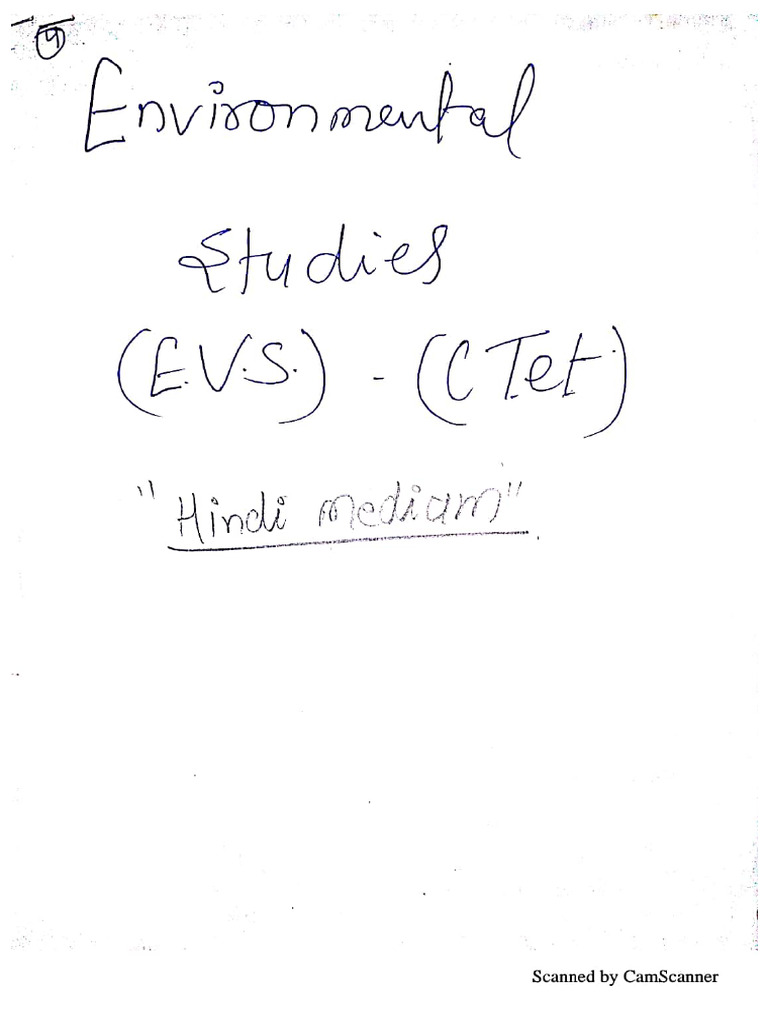 Environmental
Studies
(E.V.S.) - (CTet)
"Hindi medium"
Scanned by CamScanner